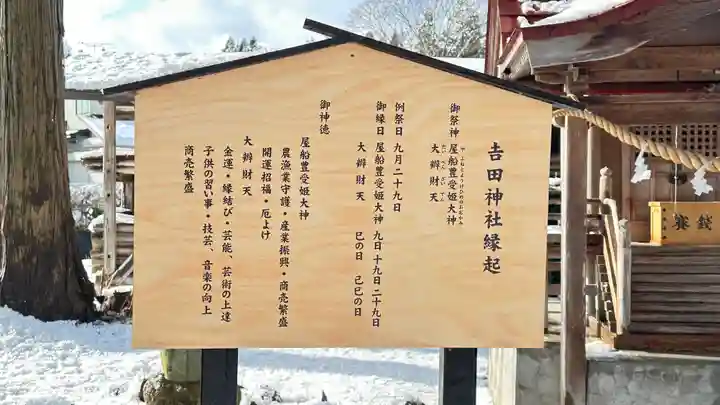 𠮷田神社縁起
御祭神 屋船豊受姫大神
大辨財天
例祭日 九月二十九日
御縁日 屋船豊受姫大神 九日 十九日 二十九日
大辨財天 巳の日 己巳の日
御神徳
屋船豊受姫大神
農漁業守護・産業振興・商売繁盛
開運招福・厄よけ
大辨財天
金運・縁結び・芸能、芸術の上達
子供の習い事・技芸、音楽の向上
商売繁盛
賽銭